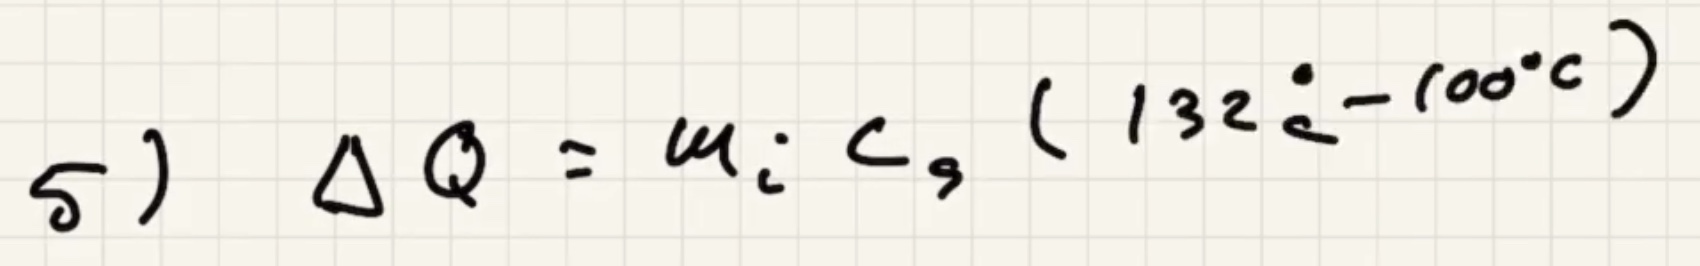 5) ΔQ = m_i c_s (132°C - 100°C)